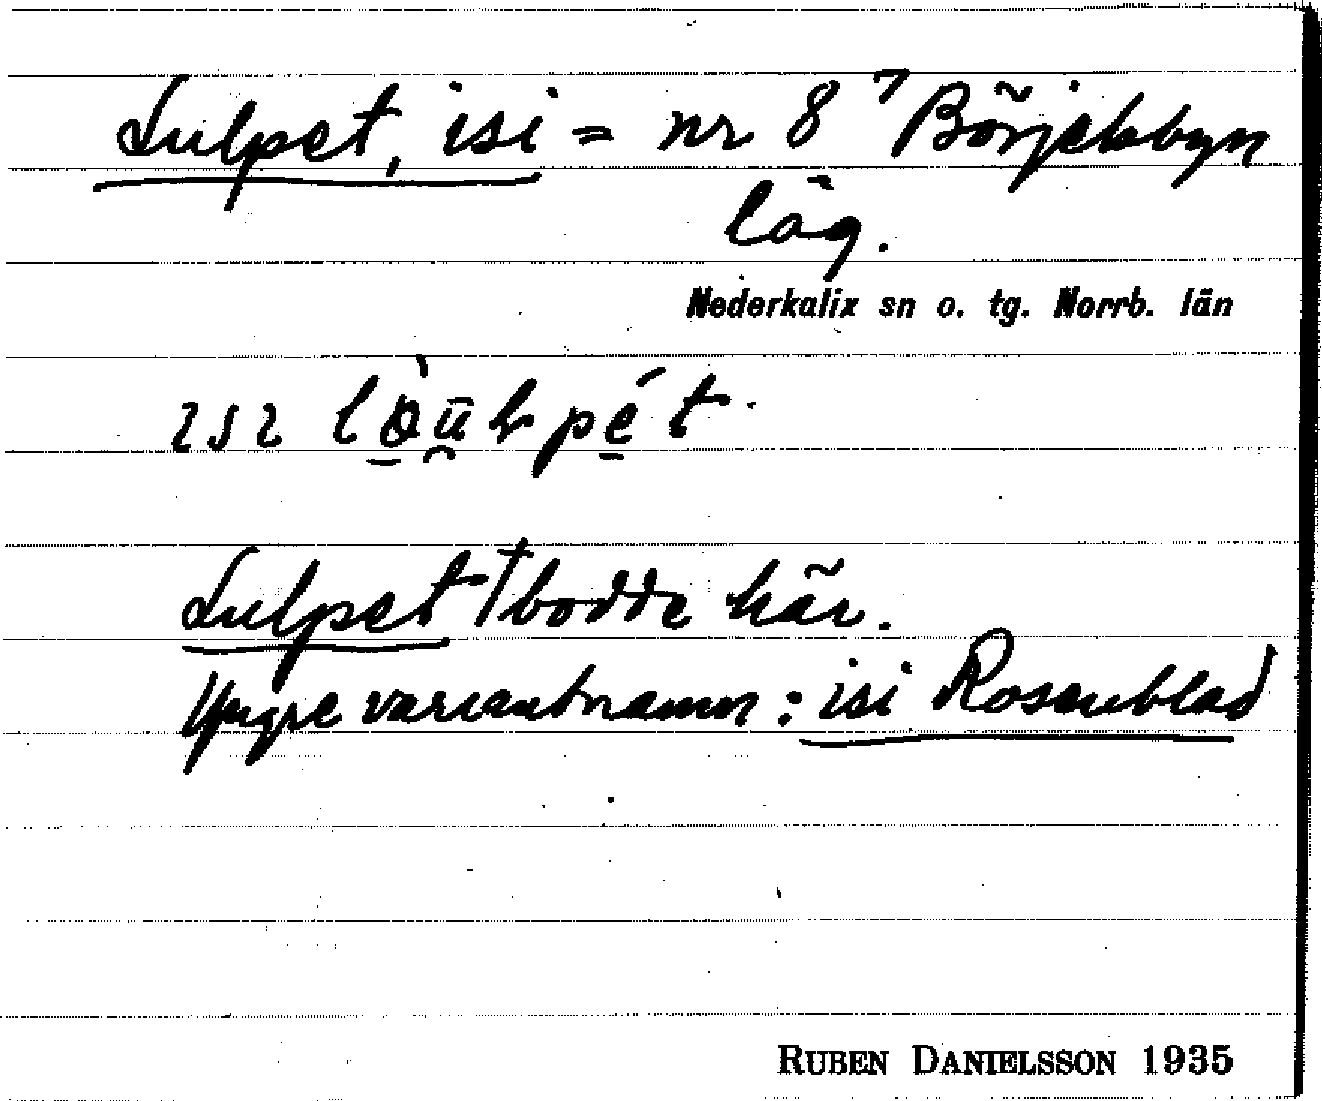 Lulpet, isi = nr 8⁷ Börjelsbyn
läg.
Nederkalix sn o. tg. Norrb. län
ɩsɩ
Lulpet † bodde här.
Yngre variantnamn: isi Rosenblad
RUBEN DANIELSSON 1935